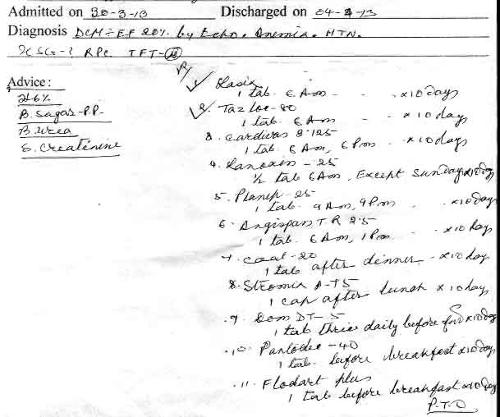 Admitted on 30-3-13 Discharged on 04-4-13
Diagnosis DCM c EF 20% by Echo. Anemia. HTN.
RPC TFT-N
Advice:
Hb%
B. Sugar-P.P.
B. Urea
S. Creatinine
Lasix
1 tab 6 Am - - x10 days
2. Tazloc-80
1 tab 6 Am - x10 days
3. Cardivas 3.125
1 tab 6 Am, 6 Pm - x10 days
4. Lanoxin - 25
½ tab 6 Am, Except Sunday x10 days
5. 25
1 tab 9 Am, 9 Pm - x10 days
6. Angispan TR 2.5
1 tab 6 Am, 1 Pm - x10 days
7. 20
1 tab after dinner - x10 days
8.
1 cap after lunch x10 days
9. Dom DT-5
1 tab thrice daily before food x10 days
10. Pantodac - 40
1 tab before breakfast x10 days
11. Flodart plus
1 tab before breakfast x10 days
P.T.O